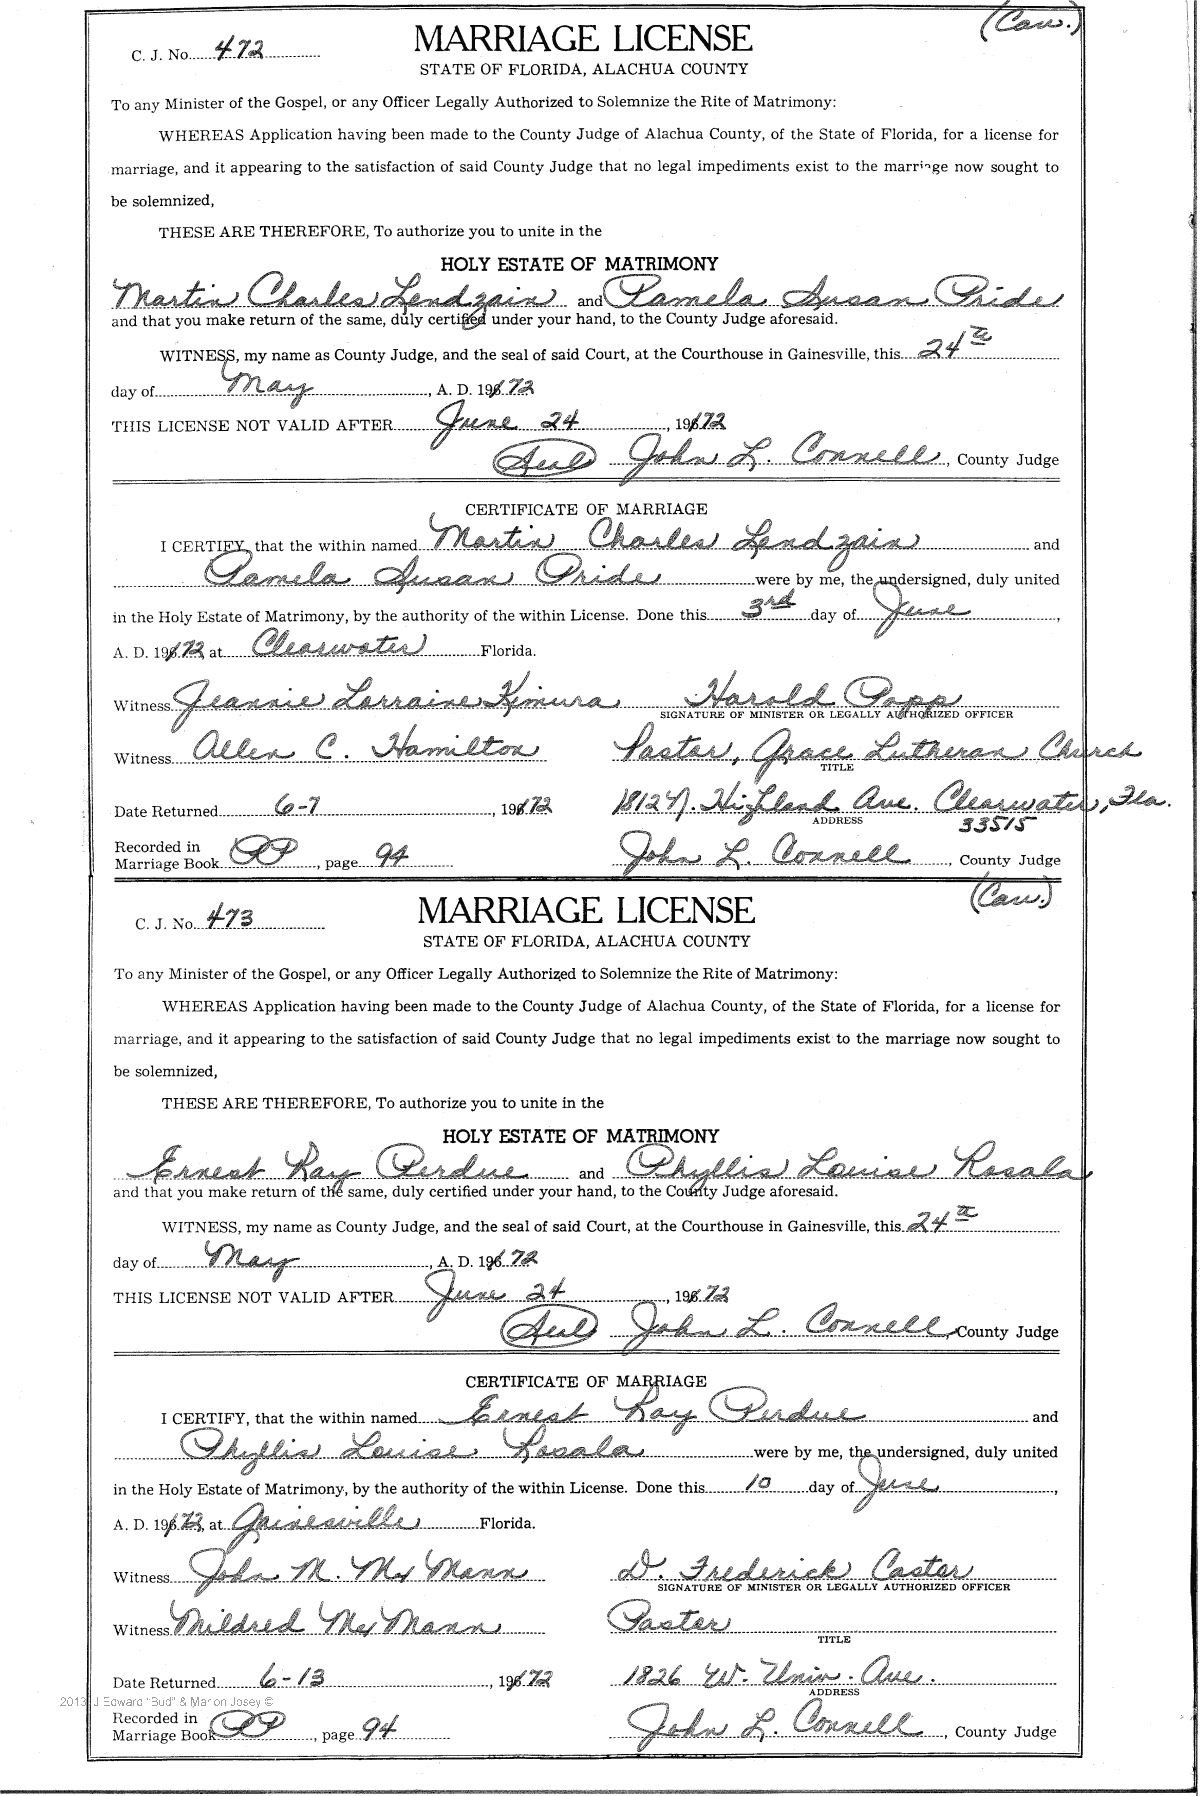 (Cau.)
C. J. No. 472
MARRIAGE LICENSE
STATE OF FLORIDA, ALACHUA COUNTY
To any Minister of the Gospel, or any Officer Legally Authorized to Solemnize the Rite of Matrimony:
WHEREAS Application having been made to the County Judge of Alachua County, of the State of Florida, for a license for
marriage, and it appearing to the satisfaction of said County Judge that no legal impediments exist to the marriage now sought to
be solemnized,
THESE ARE THEREFORE, To authorize you to unite in the
HOLY ESTATE OF MATRIMONY
Martin Charles Lendzain and Pamela Susan Pride
and that you make return of the same, duly certified under your hand, to the County Judge aforesaid.
WITNESS, my name as County Judge, and the seal of said Court, at the Courthouse in Gainesville, this 24th
day of May, A. D. 1972
THIS LICENSE NOT VALID AFTER June 24, 1972
(Seal) John L. Connell, County Judge
CERTIFICATE OF MARRIAGE
I CERTIFY, that the within named Martin Charles Lendzain and
Pamela Susan Pride were by me, the undersigned, duly united
in the Holy Estate of Matrimony, by the authority of the within License. Done this 3rd day of June,
A. D. 1972, at Clearwater Florida.
Witness Jeannie Lorraine Kimura Harold Popp
SIGNATURE OF MINISTER OR LEGALLY AUTHORIZED OFFICER
Witness Allen C. Hamilton Pastor, Grace Lutheran Church
TITLE
Date Returned 6-7, 1972 1812 N. Highland Ave. Clearwater, Fla.
ADDRESS 33515
Recorded in
Marriage Book PP, page 94 John L. Connell, County Judge
(Cau.)
C. J. No. 473
MARRIAGE LICENSE
STATE OF FLORIDA, ALACHUA COUNTY
To any Minister of the Gospel, or any Officer Legally Authorized to Solemnize the Rite of Matrimony:
WHEREAS Application having been made to the County Judge of Alachua County, of the State of Florida, for a license for
marriage, and it appearing to the satisfaction of said County Judge that no legal impediments exist to the marriage now sought to
be solemnized,
THESE ARE THEREFORE, To authorize you to unite in the
HOLY ESTATE OF MATRIMONY
Ernest Ray Perdue and Phyllis Louise Rosala
and that you make return of the same, duly certified under your hand, to the County Judge aforesaid.
WITNESS, my name as County Judge, and the seal of said Court, at the Courthouse in Gainesville, this 24th
day of May, A. D. 1972
THIS LICENSE NOT VALID AFTER June 24, 1972
(Seal) John L. Connell, County Judge
CERTIFICATE OF MARRIAGE
I CERTIFY, that the within named Ernest Ray Perdue and
Phyllis Louise Rosala were by me, the undersigned, duly united
in the Holy Estate of Matrimony, by the authority of the within License. Done this 10 day of June,
A. D. 1972, at Gainesville Florida.
Witness John M. McMann D. Frederick Castor
SIGNATURE OF MINISTER OR LEGALLY AUTHORIZED OFFICER
Witness Mildred McMann Pastor
TITLE
Date Returned 6-13, 1972 1826 W. Univ. Ave.
ADDRESS
2013 J Edward "Bud" & Marion Josey ©
Recorded in
Marriage Book PP, page 94 John L. Connell, County Judge